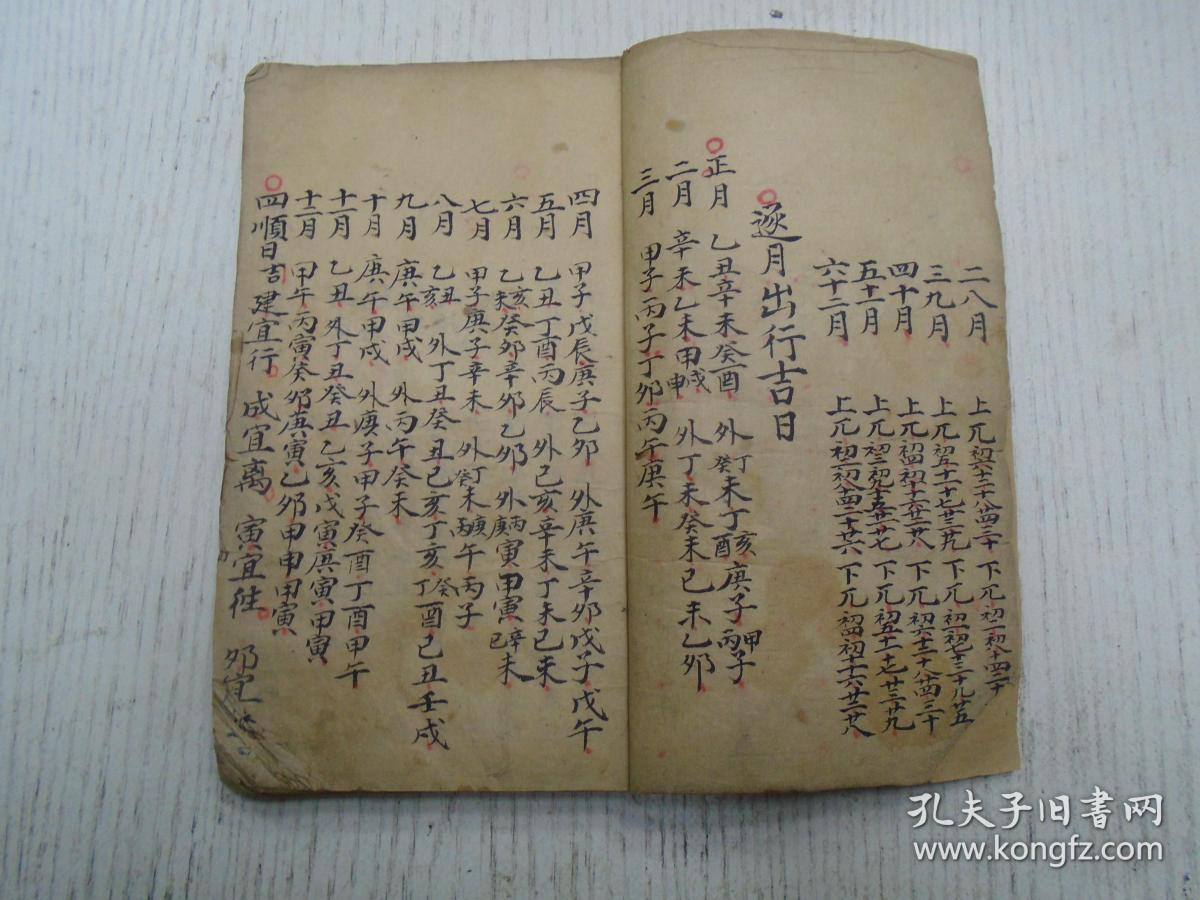 二八月 上兀初六十二十八廿四三十 下兀初二初八十四二十
三九月 上兀初五十一十七廿三廿九 下兀初一初七十三十九廿五
四十月 上兀初四初十十六廿二廿八 下兀初六十二十八廿四三十
五十一月 上兀初三初九十五廿一廿七 下兀初五十一十七廿三廿九
六十二月 上兀初二初八十四二十廿六 下兀初四初十十六廿二廿八
逐月出行吉日
正月 乙丑辛未癸酉 外丁未癸未丁亥丁酉庚子甲子丙子
二月 辛未乙未甲戌甲申 外丁未癸未己未乙卯
三月 甲子丙子丁卯丙午庚午
四月 甲子戊辰庚子乙卯 外庚午辛卯戊子戊午
五月 乙丑丁酉丙辰 外己亥辛未丁未己未
六月 乙亥乙未癸卯辛卯乙卯 外丙寅庚寅甲寅辛未己未
七月 甲子庚子辛未 外丁未癸未丙午庚午丙子
八月 乙丑乙亥 外丁丑癸丑己亥丁亥丁酉癸酉己丑壬戌
九月 庚午甲戌 外丙午癸未
十月 庚午甲戌 外庚子甲子癸酉丁酉甲午
十一月 乙丑 外丁丑癸丑乙亥戊寅庚寅甲寅
十二月 甲午丙寅癸卯庚寅乙卯甲申甲寅
四順日吉 建宜行 成宜离 寅宜往 卯宜
孔夫子旧书网
www.kongfz.com